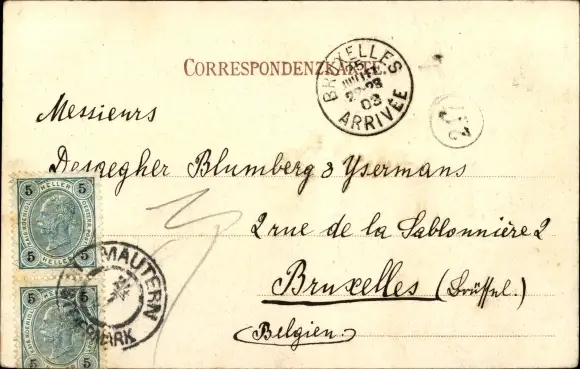 CORRESPONDENZKARTE.
BRUXELLES
25
JUIL
22-23
03
ARRIVÉE
Messieurs
Desaegher Blumberg & Ysermans
2 rue de la Sablonnière 2
Bruxelles (Brüssel.)
Belgien.
5 HELLER 5
5 HELLER 5
MAUTERN
5 5